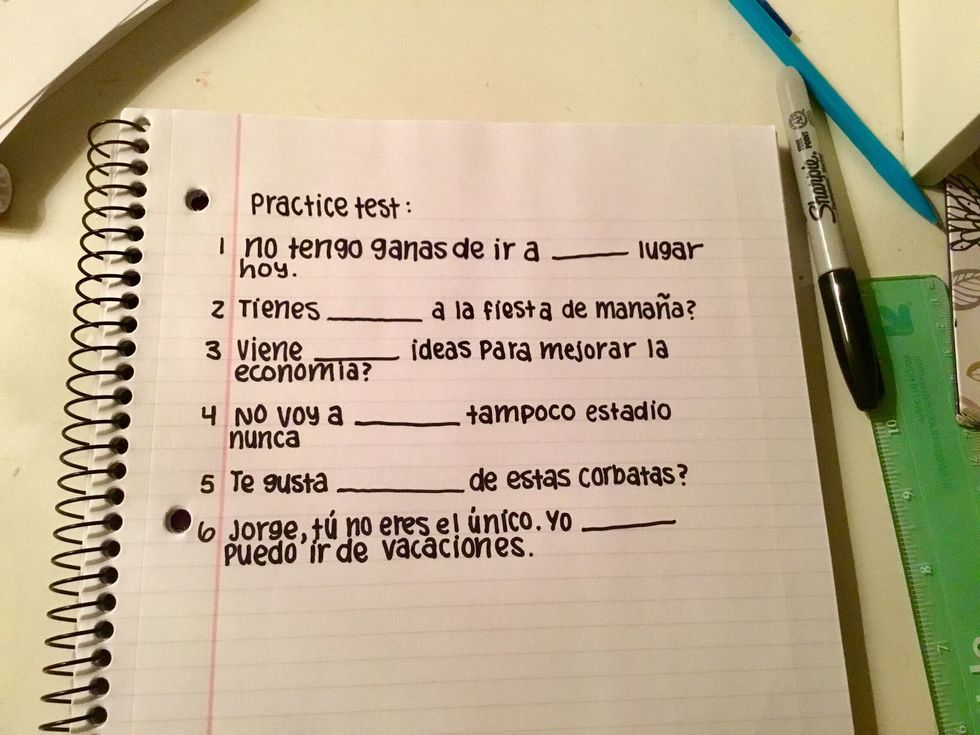 Practice test:
1 no tengo ganas de ir a ______ lugar
hoy.
2 Tienes ______ a la fiesta de manaña?
3 Viene ______ ideas para mejorar la
economia?
4 No voy a ______ tampoco estadio
nunca
5 Te gusta ______ de estas corbatas?
6 Jorge, tú no eres el único. Yo ______
puedo ir de vacaciones.
Sharpie.